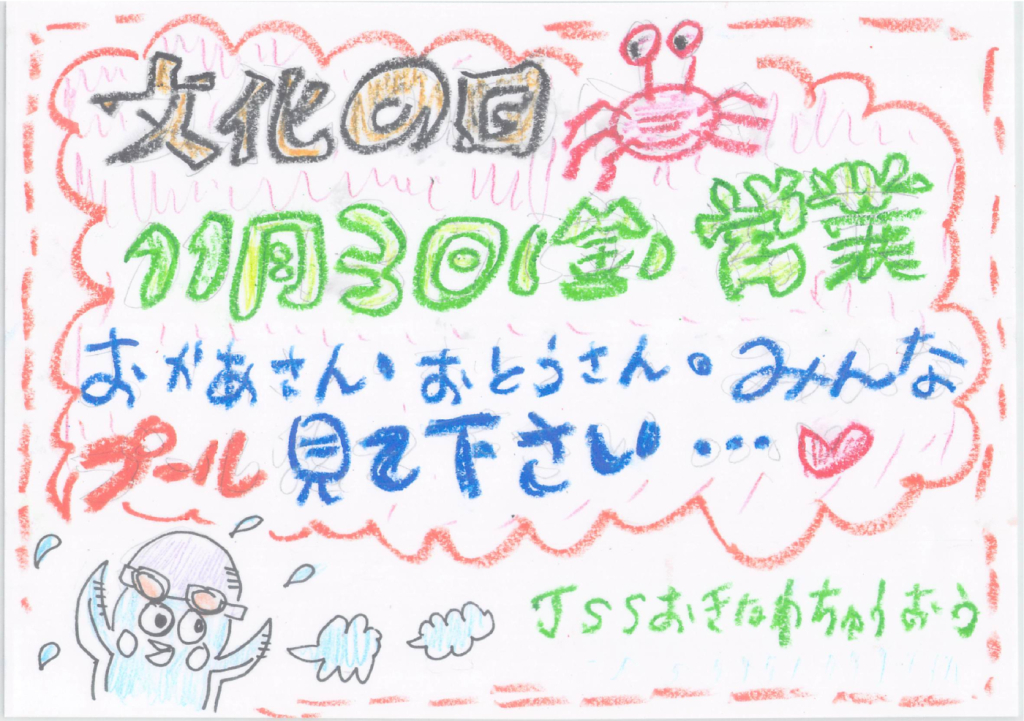 文化の日
11月3日(金)営業
おかあさん・おとうさん・みんな
プール見て下さい・・・
JSSおきなわちゅうおう